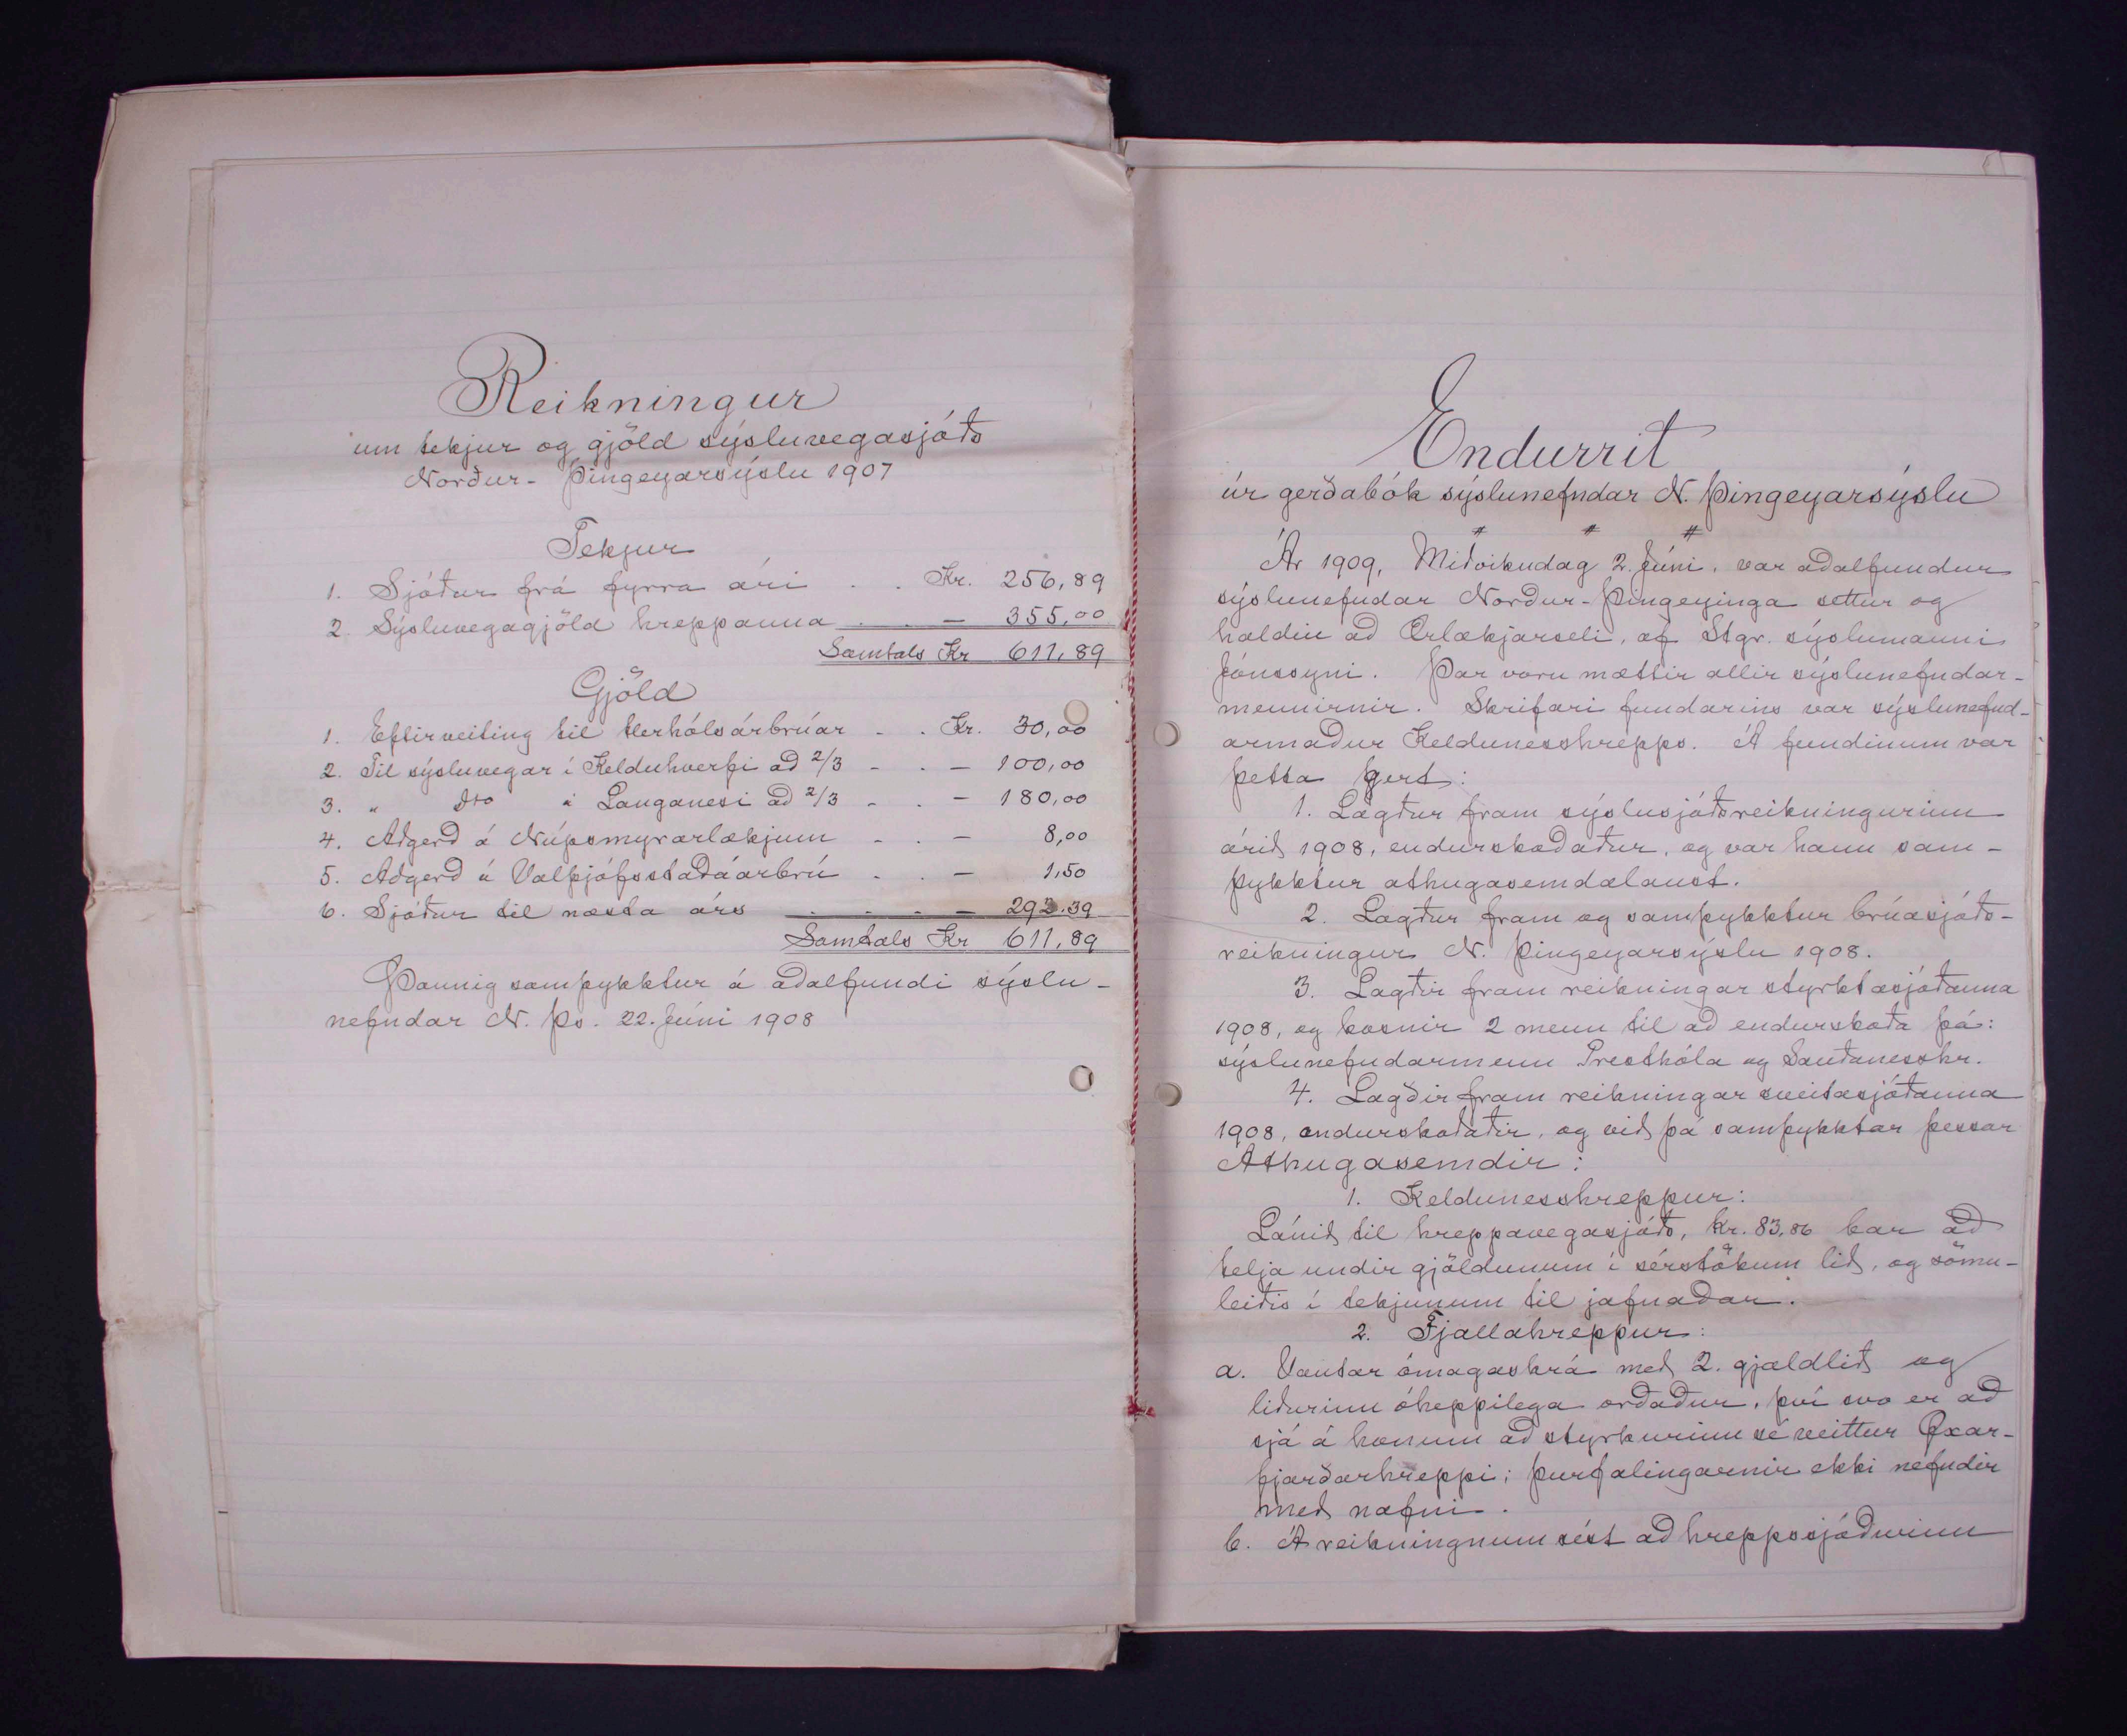 Reikningur
um tekjur og gjöld sýsluvegasjóðs
Norður-Þingeyarsýslu 1907
Tekjur
1. Sjóður frá fyrra ári . . Kr. 256,89
2. Sýsluvegagjöld hreppanna . . — 355,00
Samtals Kr 611,89
Gjöld
1. Eftirveiting til Herhólsárbrúar - . Kr. 30,00
2. Til sýsluvegar í Kelduhverfi að 2/3 - . — 100,00
3. " Dto á Langanesi að 2/3 - . — 180,00
4. Aðgerð á Núpsmýrarlækjum - . — 8,00
5. Aðgerð á Valþjófsstaðaárbrú . . — 1,50
6. Sjóður til næsta árs . . . — 292.39
Samtals Kr 611,89
Þannig samþykktur á aðalfundi sýslu-
nefndar N. Þs. 22. Júní 1908
Endurrit
úr gerðabók sýslunefndar N. Þingeyarsýslu
# # #
Ár 1909, Miðvikudag 2. Júní, var aðalfundur
sýslunefndar Norður-Þingeyinga settur og
haldin að Ærlækjarseli, af Stgr. sýslumanni
Jónssyni. Þar voru mættir allir sýslunefndar-
mennirnir. Skrifari fundarins var sýslunefnd-
armaður Keldunesshrepps. Á fundinum var
þetta gert:
1. Lagður fram sýslusjóðsreikningurinn
árið 1908, endurskoðaður, og var hann sam-
þykktur athugasemdalaust.
2. Lagður fram og samþykktur brúasjóðs-
reikningur N. Þingeyarsýslu 1908.
3. Lagðir fram reikningar styrktasjóðanna
1908, og kosnir 2 menn til að endurskoða þá:
sýslunefndarmenn Presthóla og Sauðanesshr.
4. Lagðir fram reikningar sveitasjóðanna
1908, endurskoðaðir, og við þá samþykktar þessar
Athugasemdir:
1. Keldunesshreppur:
Lánið til hreppavegasjóðs, kr. 83,86 bar að
telja undir gjöldunum í sérstökum lið, og sömu-
leiðis í tekjunum til jafnaðar.
2. Fjallahreppur:
a. Vantar ómagaskrá með 2. gjaldlið og
liðurinn óheppilega orðaður, því svo er að
sjá á honum að styrkurinn sé veittur Öxar-
fjarðarhreppi; þurfalingarnir ekki nefndir
með nafni.
b. Á reikningnum sést að hreppssjóðurinn